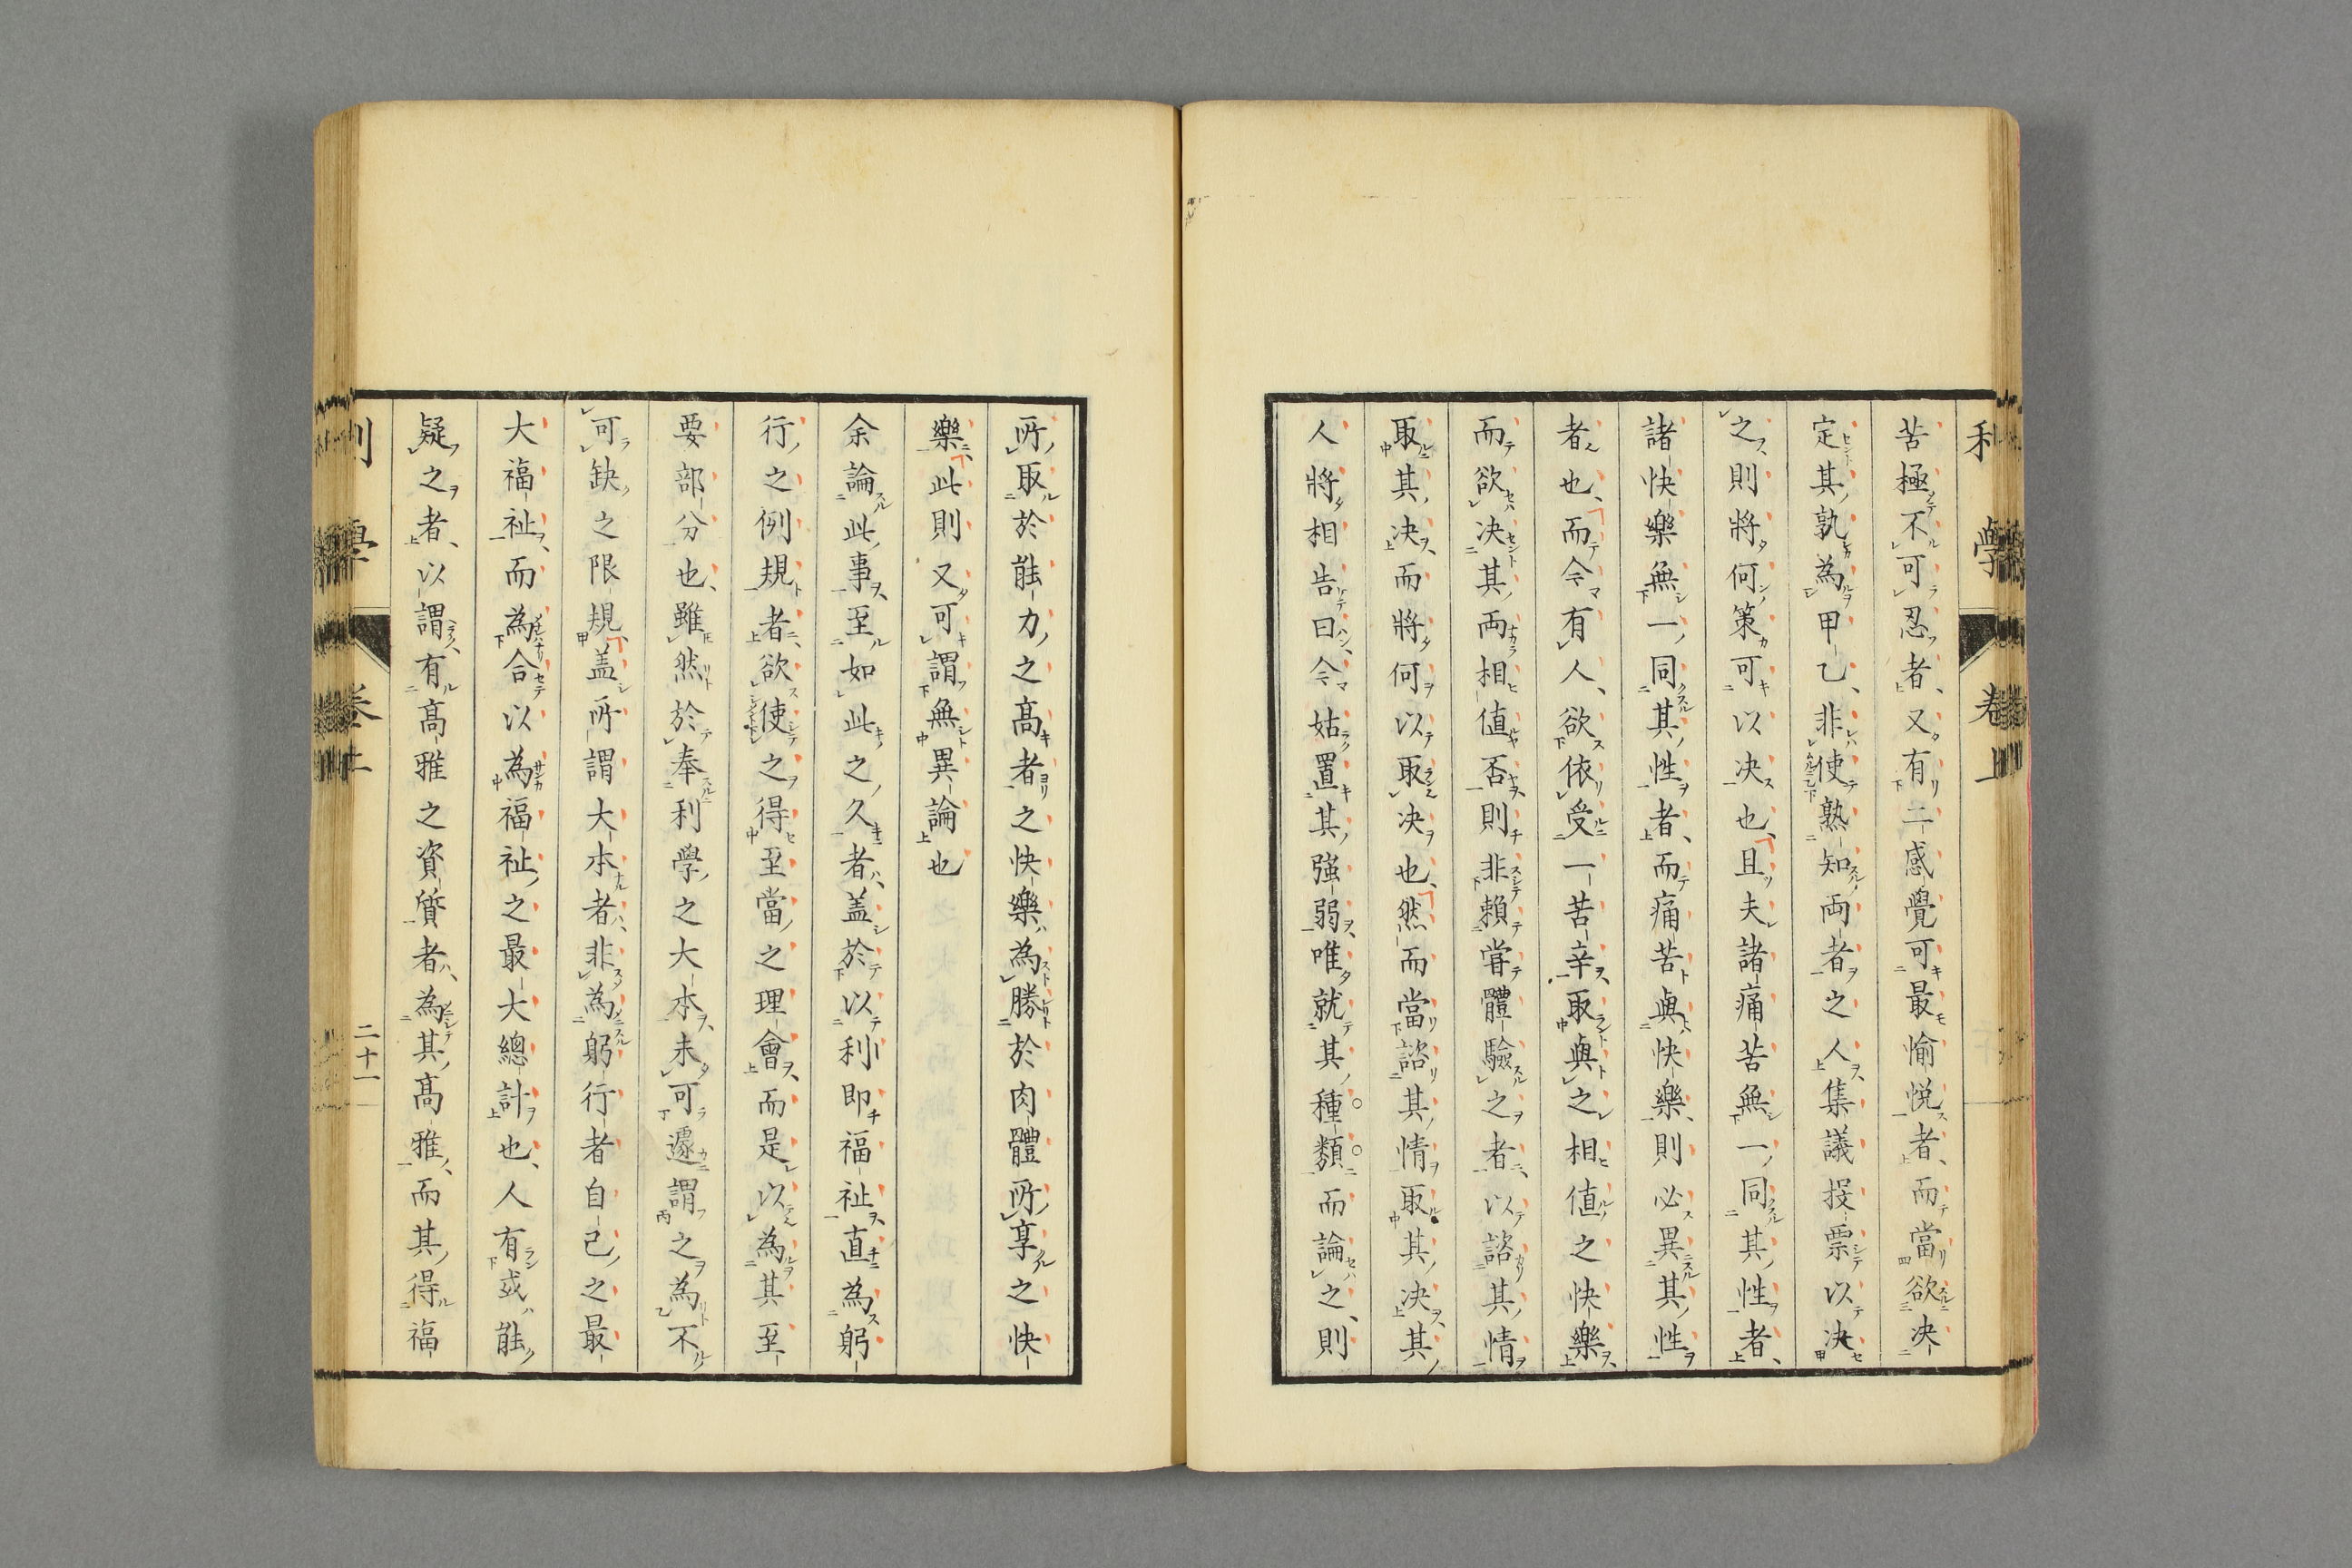 利學 卷上
苦極不可忍者、又有二感覺可最愉悅者、而當欲決
定其孰為甲乙、非使熟知両者之人集議投票以決
之、則將何策可以決也、且夫諸痛苦無一同其性者、
諸快樂無一同其性者、而痛苦與快樂、則必異其性
者也、而今有人、欲依受一苦辛取與之相値之快樂、
而欲決其両相値否則非賴嘗體驗之者、以諮其情
取其決、而將何以取決也、然而當諮其情取其決其
人將相告曰、今姑置其強弱、唯就其種類而論之、則
所取於能力之高者之快樂為勝於肉體所享之快
樂、此則又可謂無異論也
余論此事、至如此之久者、盖於以利即福祉、直為躬
行之例規者、欲使之得至當之理會、而是以為其至
要部分也、雖然於奉利學之大本、未可遽謂之為不
可缺之限規、盖所謂大本者、非為躬行者自己之最
大福祉、而為合以為福祉之最大總計也、人有或能
疑之者、以謂有高雅之資質者、為其高雅、而其得福
利學 卷上 二十一